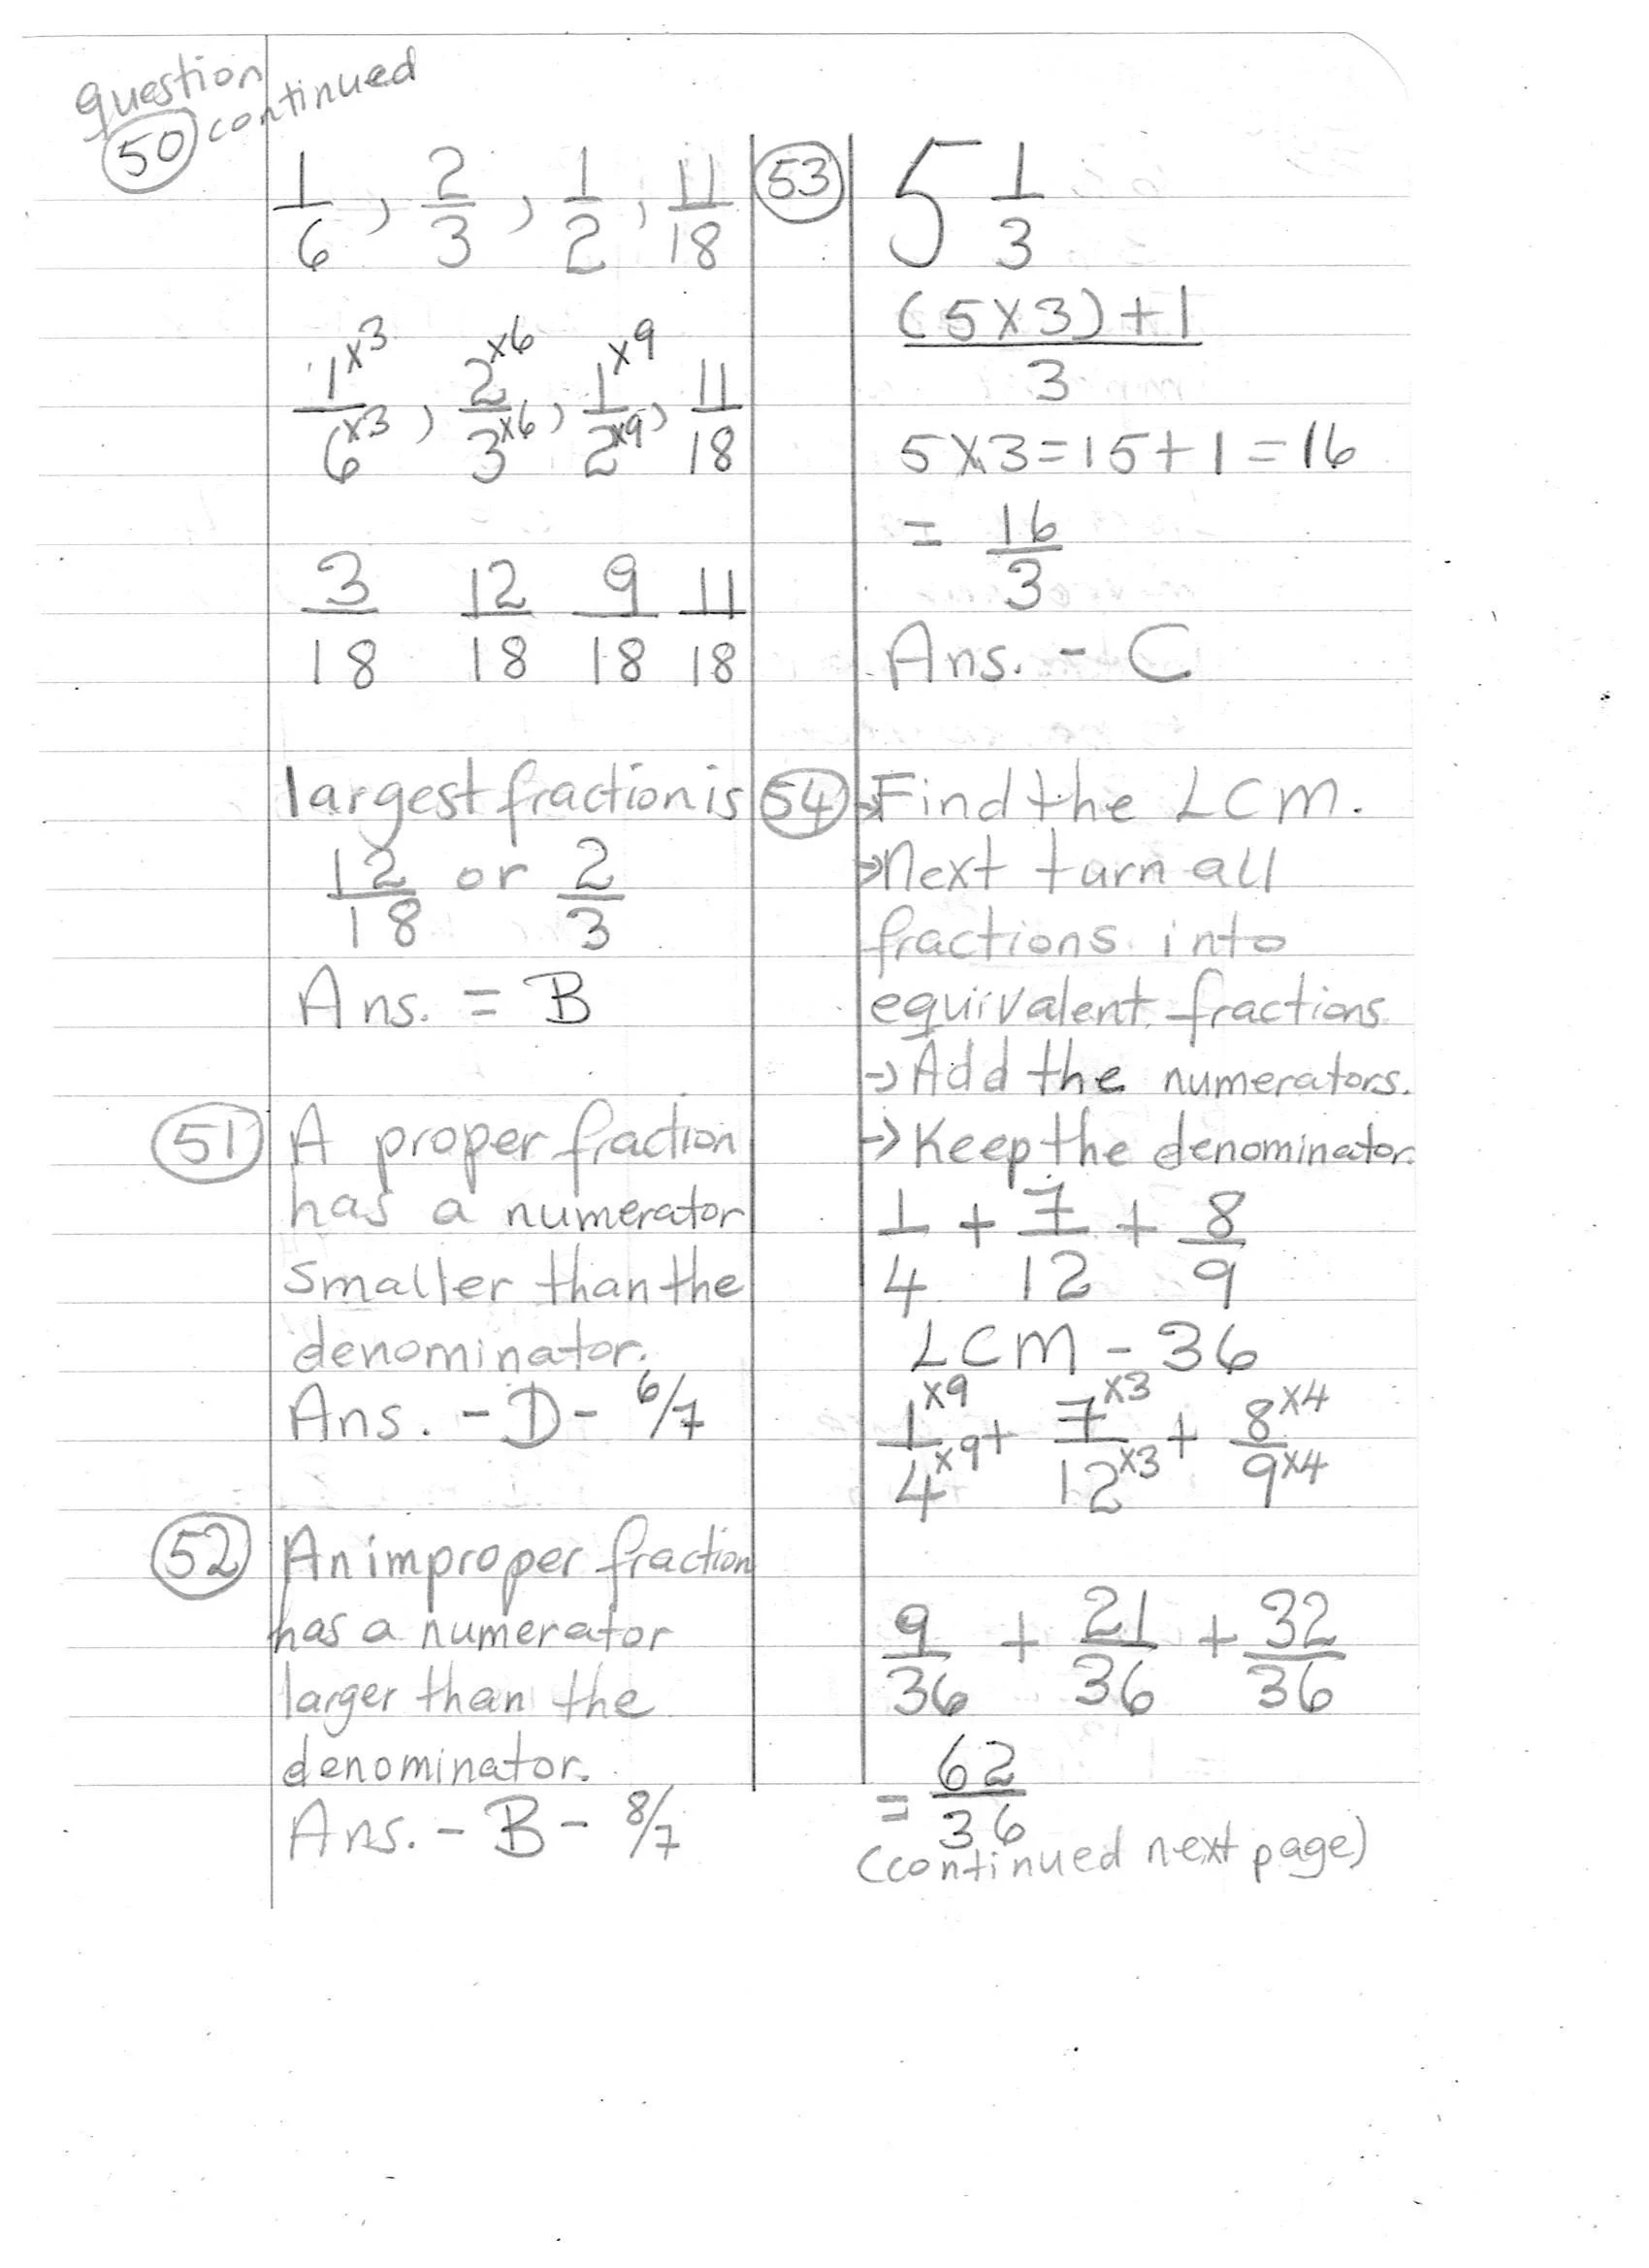 question
50 continued
1/6, 2/3, 1/2, 11/18
1×3/6×3, 2×6/3×6, 1×9/2×9, 11/18
3/18 12/18 9/18 11/18
largest fraction is
12/18 or 2/3
Ans. = B
51 A proper fraction
has a numerator
smaller than the
denominator.
Ans. - D - 6/7
52 An improper fraction
has a numerator
larger than the
denominator.
Ans. - B - 8/7
53 5 1/3
(5×3)+1/3
5×3=15+1=16
= 16/3
Ans. - C
54 → Find the LCM.
→ Next turn all
fractions into
equivalent fractions.
→ Add the numerators.
→ Keep the denominator.
1/4 + 7/12 + 8/9
LCM - 36
1×9/4×9 + 7×3/12×3 + 8×4/9×4
9/36 + 21/36 + 32/36
= 62/36
(continued next page)